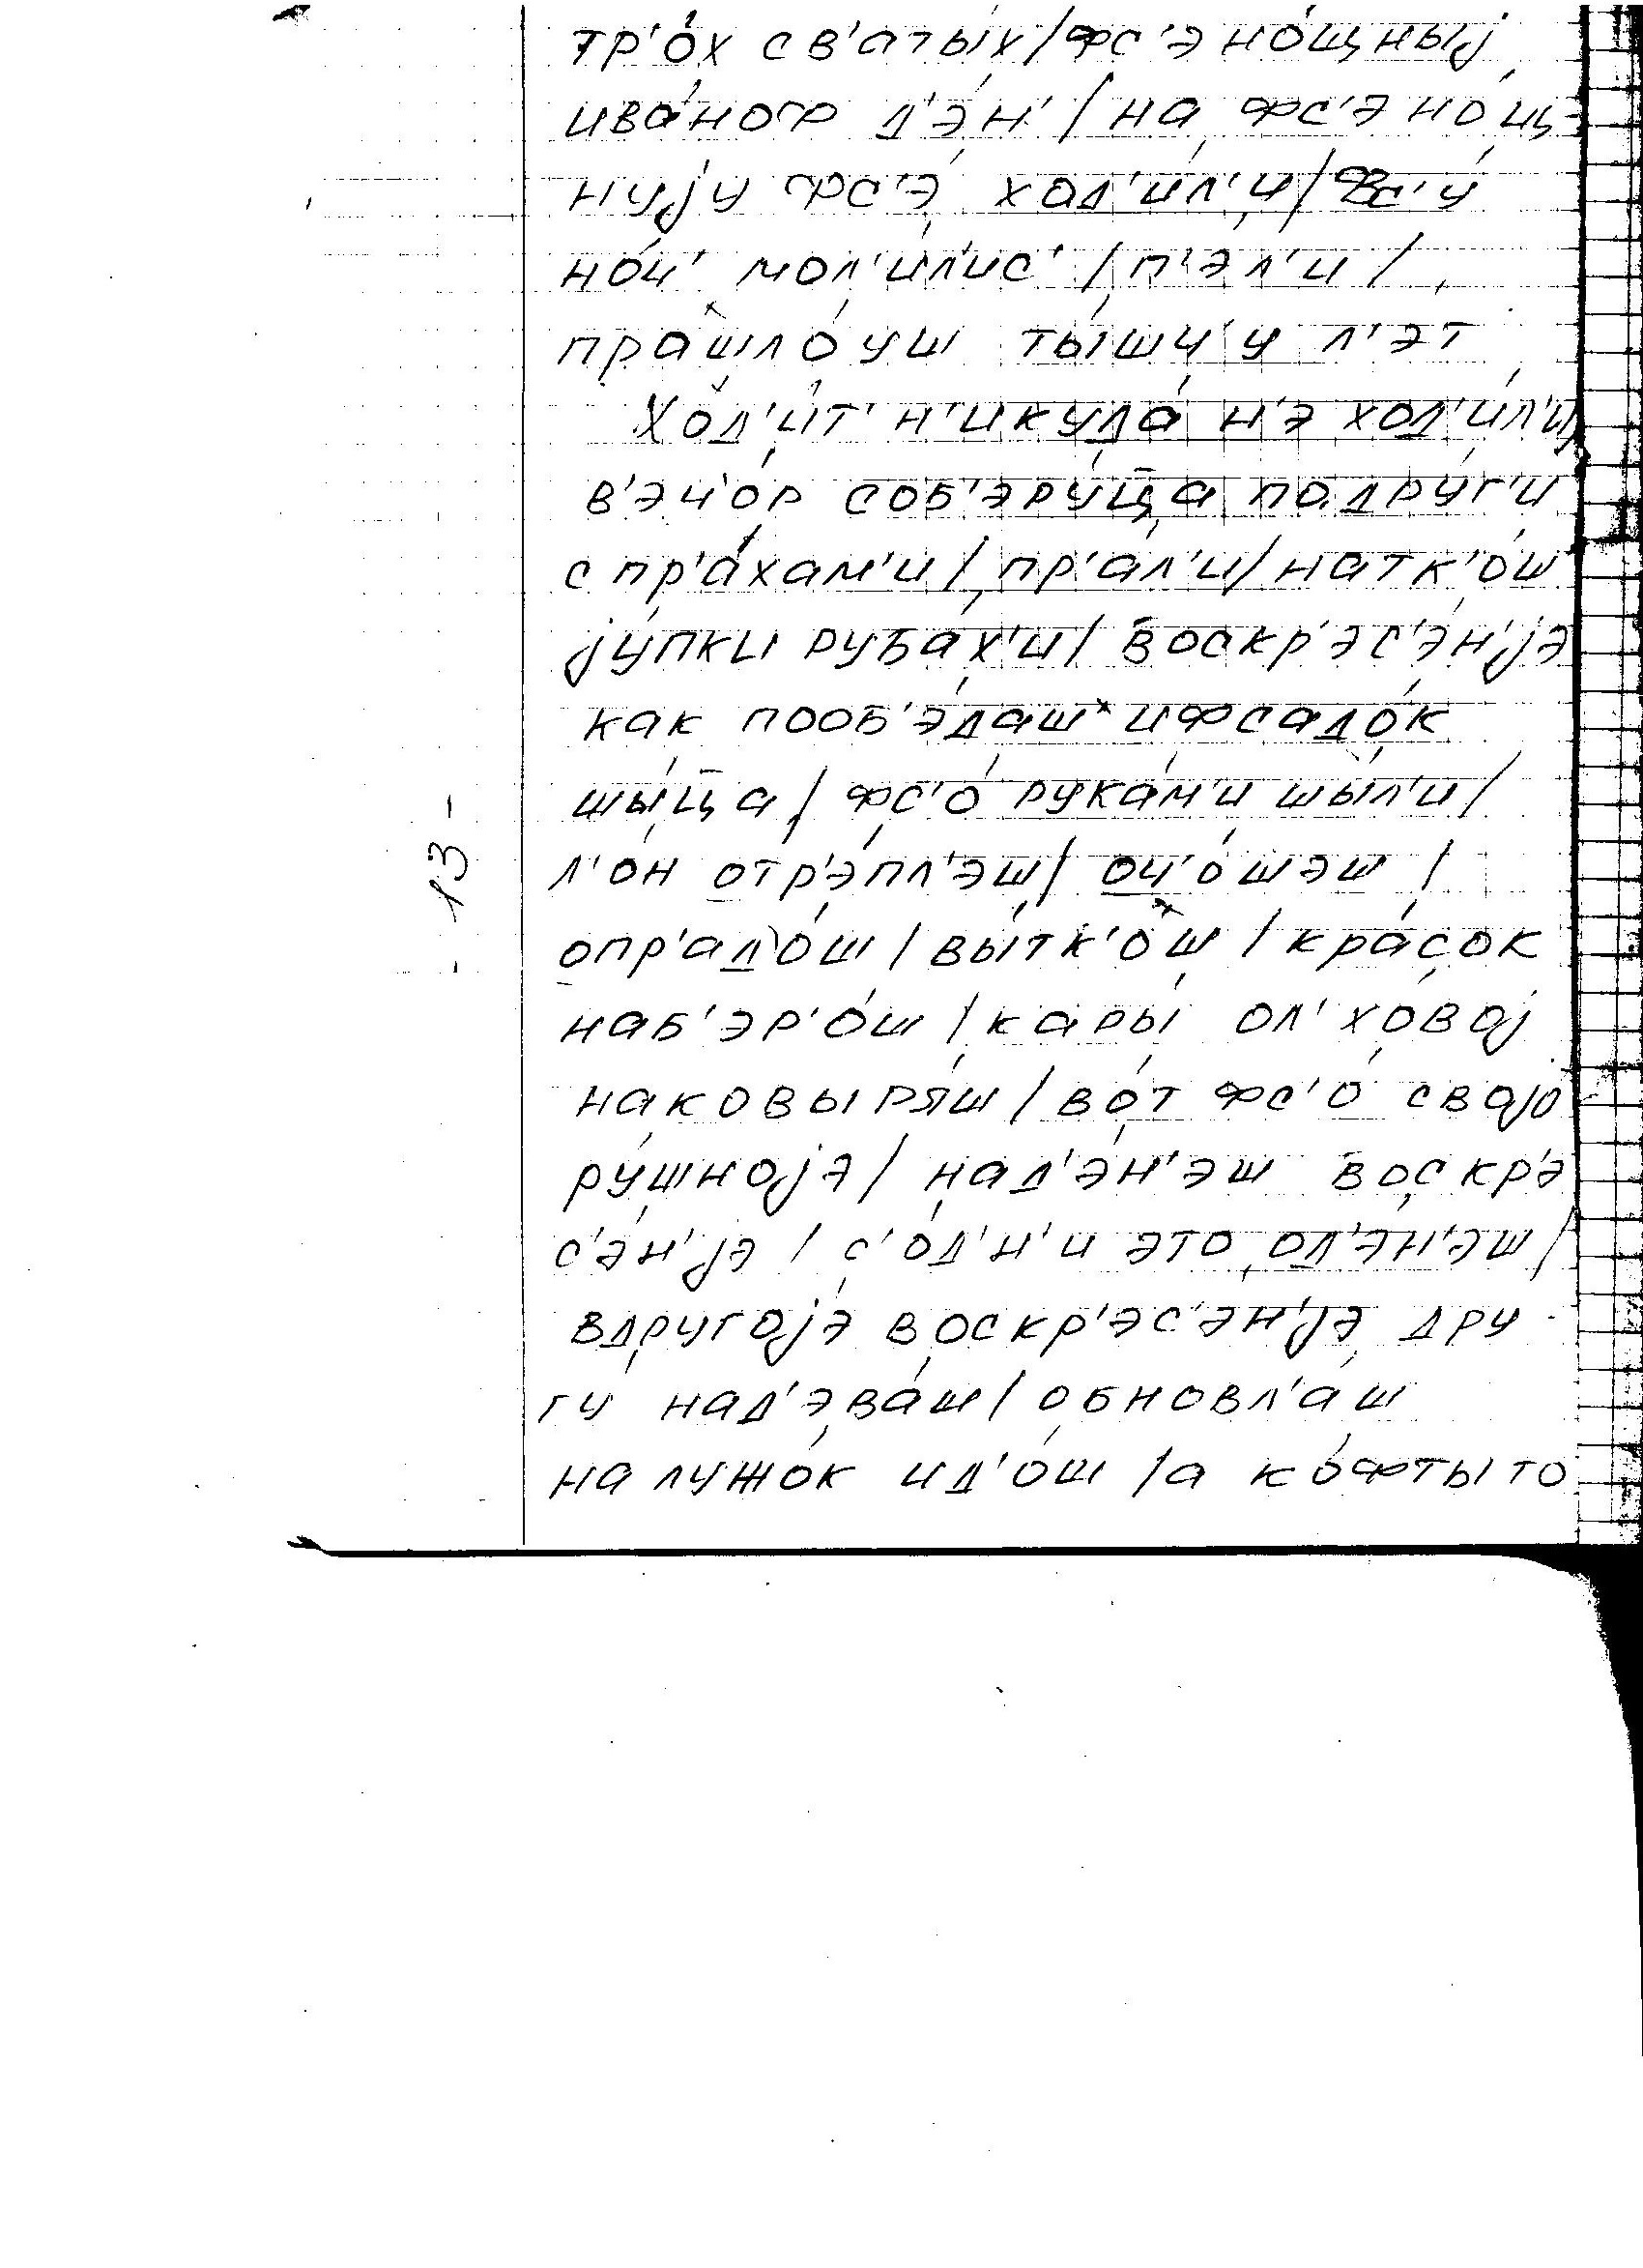 тр'о́х св'аты́х/фс'эно́щныј
ива́ноф д'э́н'/на фс'эно́щ
нују фс'э́ ход'и́л'и/фс'у́
но́ч' мол'и́л'ис'/п'э́л'и/
прашло́ уш ты́шч'у л'э́т
Ход'и́т' н'икуда́ н'э ход'и́л'и/
в'э́ч'ор соб'эру́ц̄а подру́г'и
с пр'а́хам'и/пр'а́л'и/натк'о́ш
jу́пки руба́х'и/воскр'эс'э́н'jэ
как пооб'э́даш и фсадо́к
шы́ц̄а/фс'о́ рука́м'и шы́л'и/
л'о́н отр'э́пл'эш/оч'о́шэш/
опр'ад'о́ш/вы́тк'ош/кра́сок
наб'эр'о́ш/кары́ ол'хо́вој
наковыря́ш/во́т фс'о́ својо
ру́шнојэ/над'э́н'эш воскр'э
с'э́н'jэ/с'о́д'н'и это од'э́н'эш/
в другојэ воскр'эс'э́н'jэ дру
гу над'эва́ш/обновл'а́ш
на лужо́к ид'о́ш/а ко́фты то
- 13 -